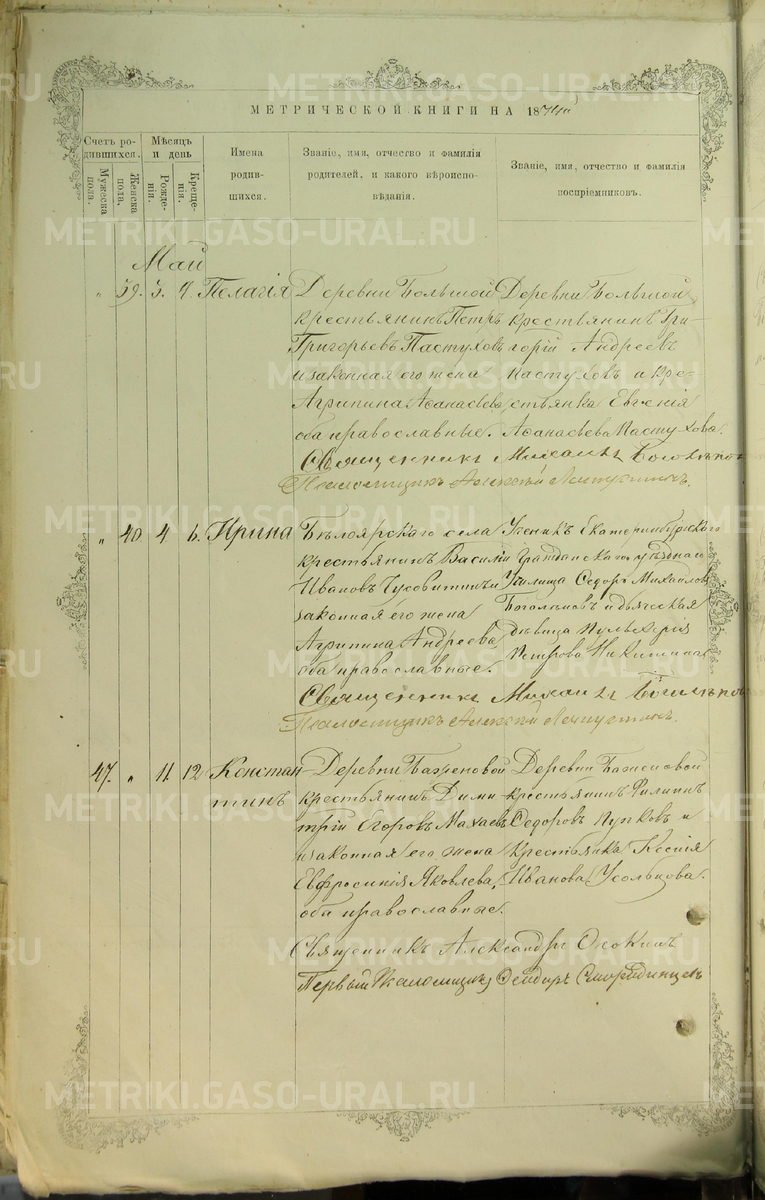 МЕТРИЧЕСКОЙ КНИГИ НА 1874
Счетъ родившихся.
Мужеска пола.
Женска пола.
Мѣсяцъ и день
Рожденія.
Крещенія.
Имена родившихся.
Званіе, имя, отчество и фамилія родителей, и какого вѣроисповѣданія.
Званіе, имя, отчество и фамилія воспріемниковъ.
Май
„ 39. 3. 4. Пелагія
Деревни Большой
крестьянинъ Петръ
Григорьевъ Пастуховъ
и законная его жена
Агрипина Аѳанасьева
оба православные.
Деревни Большой
крестьянинъ Гри-
горій Андреевъ
Пастуховъ и кре-
стьянка Евгенія
Аѳанасьева Пастухова.
Священникъ Михаилъ
Псаломщикъ Алексѣй
„ 40 4 6. Ирина
Бѣлоярскаго села
крестьянинъ Василій
Ивановъ Чусовитинъ и
законная его жена
Агрипина Андреева
оба православные.
Ученикъ Екатеринбургскаго
Гражданскаго уѣзднаго
Училища Ѳедоръ Михайловъ
Боголѣповъ и дьяческая
дѣвица Пульхерія
Петрова
Священникъ Михаилъ
Псаломщикъ Алексѣй
47. „ 11 12 Констан
тинъ
Деревни Баженовой
крестьянинъ Дими-
трій Егоровъ Махаевъ
и законная его жена
Евфросинія Яковлева,
оба православные.
Деревни Баженовой
крестьянинъ Филипъ
Ѳедоровъ Пупковъ и
крестьянка Ксенія
Иванова Усольцова.
Священникъ Александръ
Первый Псаломщикъ
METRIKI.GASO-URAL.RU